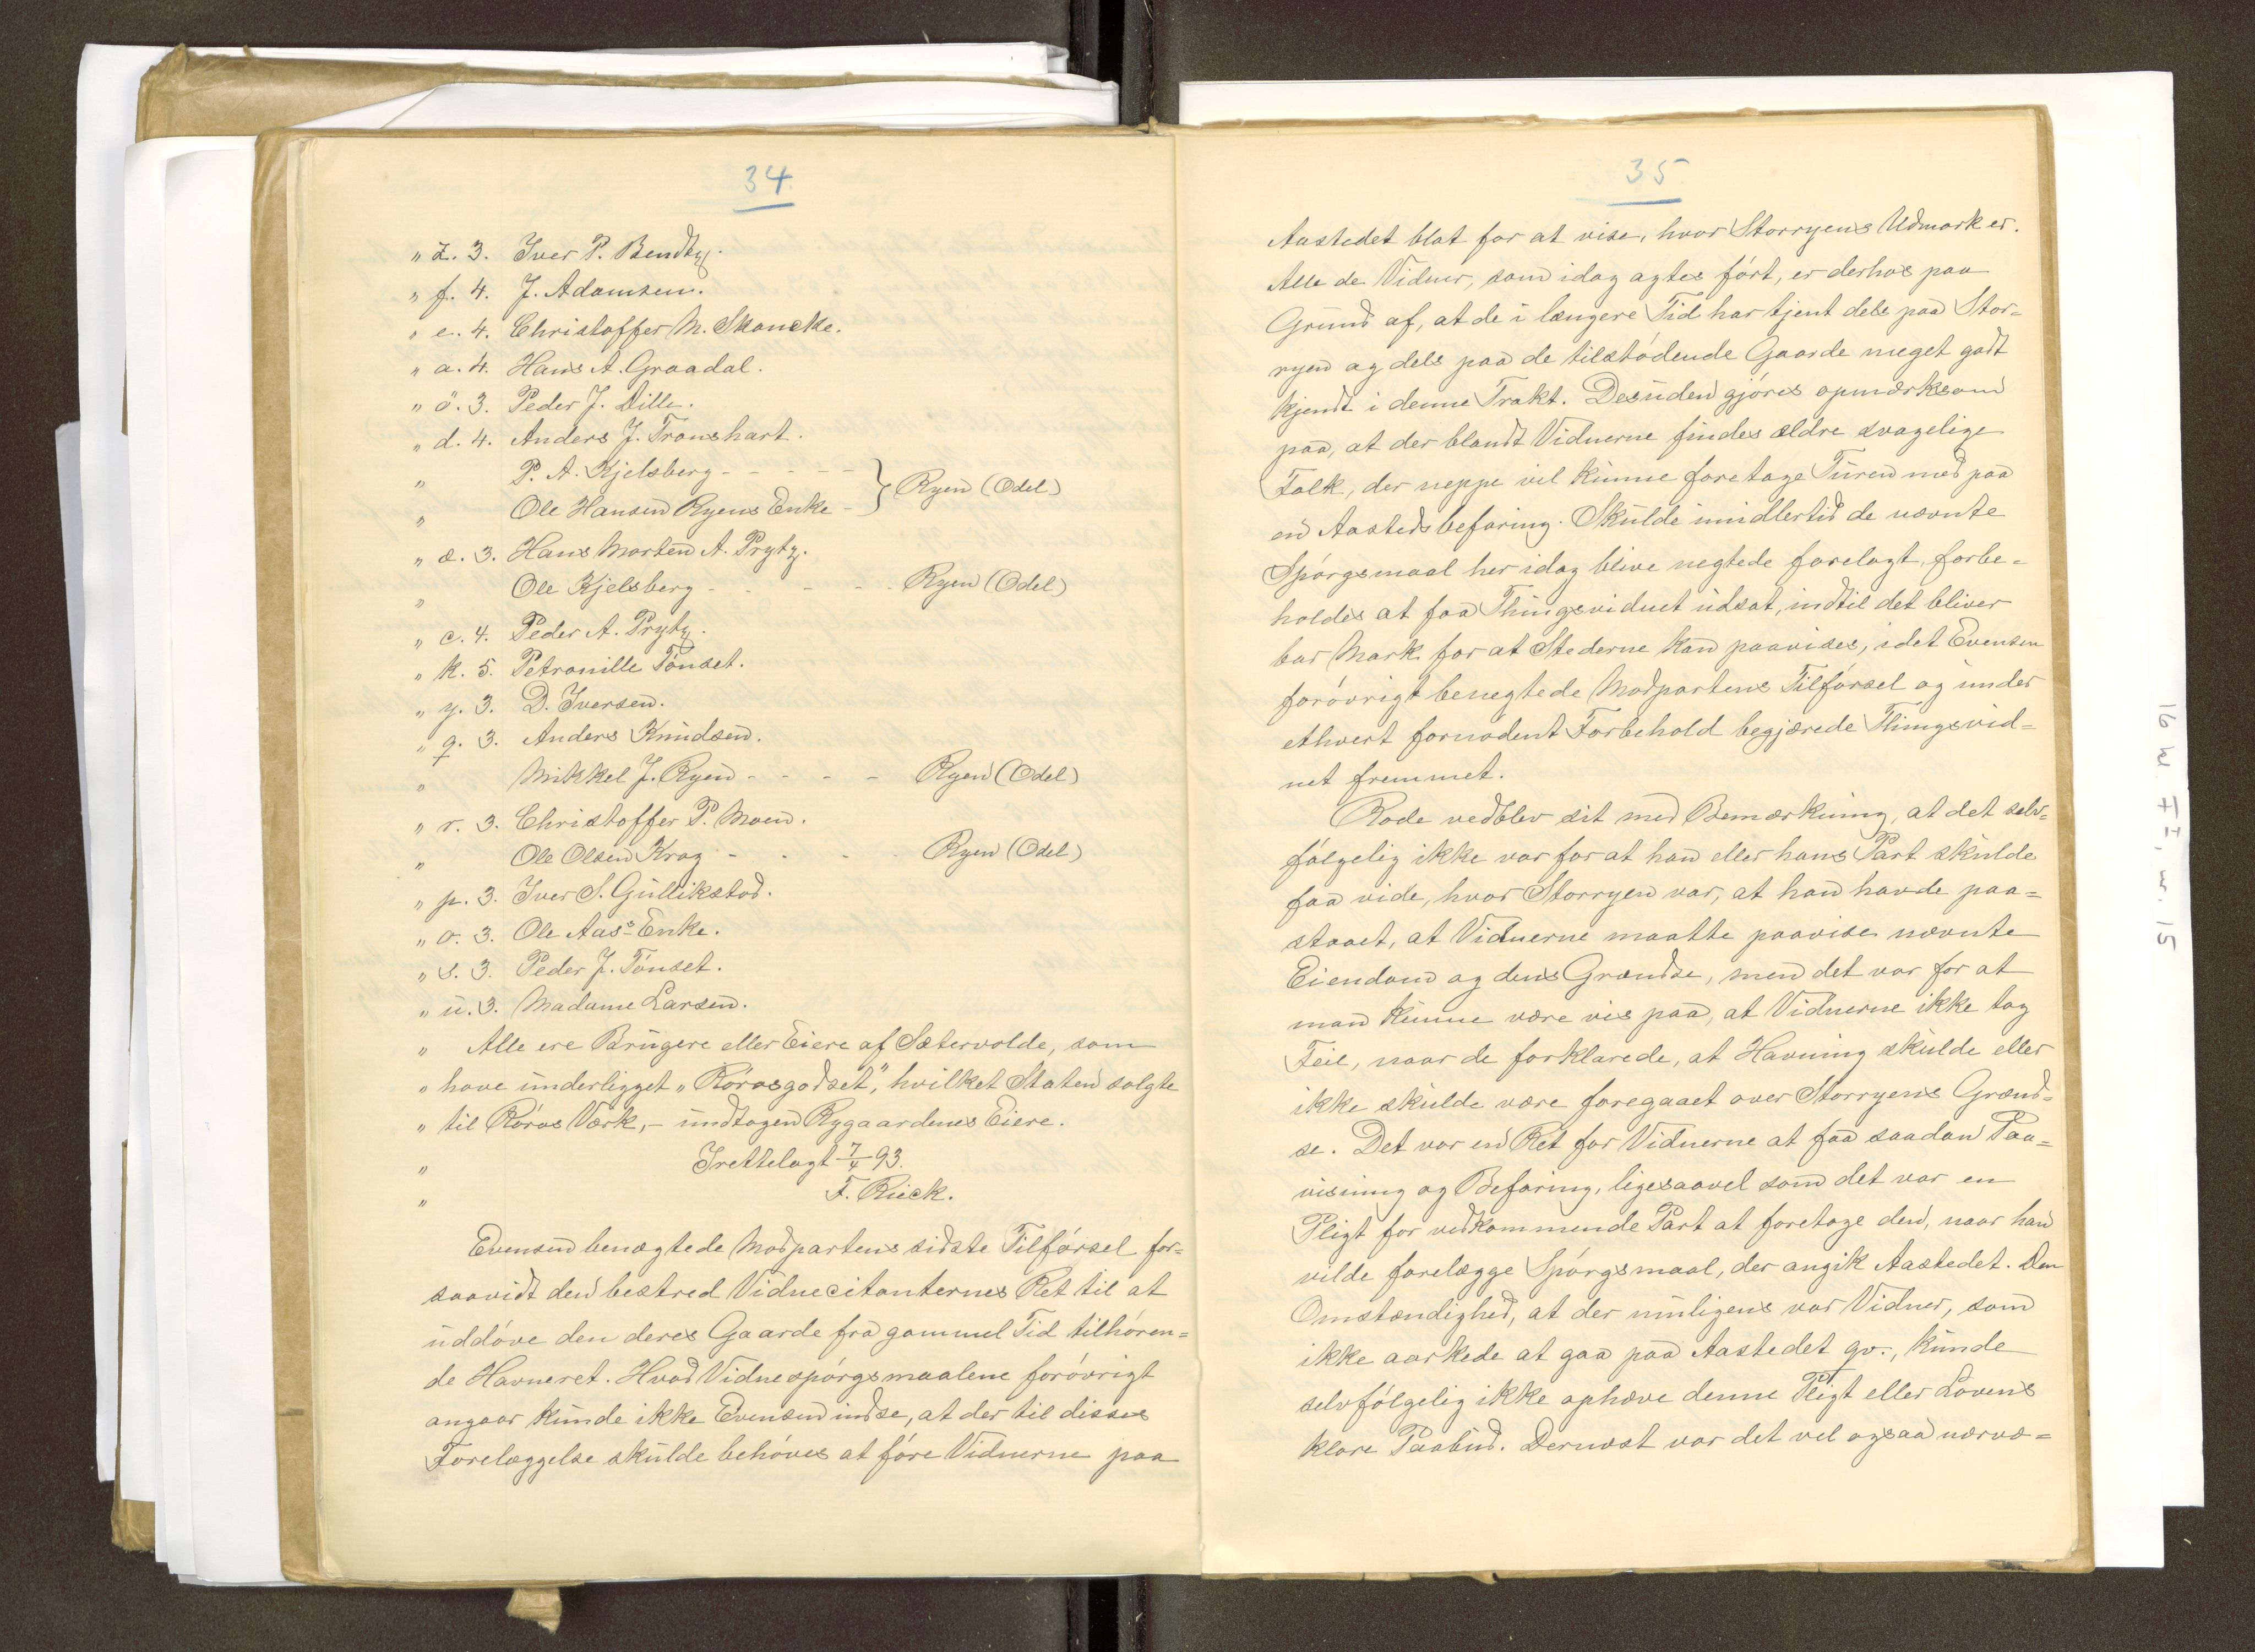 34.
" z. 3. Iver P. Bendtz.
" f. 4. J. Adamsen.
" e. 4. Christoffer M. Skancke.
" a. 4. Hans A. Graadal.
" ö. 3. Peder J. Dille.
" d. 4. Anders J. Tronshart.
" P. A. Kjelsberg - - - - -
" Ole Hansen Ryens Enke - } Ryen (Odel)
" æ. 3. Hans Morten A. Prytz.
" Ole Kjelsberg - - - - - Ryen (Odel)
" c. 4. Peder A. Prytz.
" k. 5. Petronille Tönset.
" y. 3. D. Iversen.
" q. 3. Anders Knudsen.
" Mikkel J. Ryen - - - - Ryen (Odel)
" r. 3. Christoffer P. Moen.
" Ole Olsen Krog - - - Ryen (Odel)
" p. 3. Iver S. Gullikstad.
" o. 3. Ole Aas's Enke.
" s. 3. Peder J. Tönset.
" u. 3. Madame Larsen.
" Alle ere Brugere eller Eiere af Sætervolde, som
" have underligget „Rörosgodset", hvilket Staten solgte
" til Röros Værk, - undtagen Rygaardenes Eiere.
" Irettelagt 7/4 93.
" F. Rieck.
Evensen benægtede Modpartens sidste Tilförsel for=
saavidt den bestred Vidnecitanternes Ret til at
uddöve den deres Gaarde fra gammel Tid tilhören=
de Havneret. Hvad Vidnespörgsmaalene forövrigt
angaar kunde ikke Evensen indse, at der til disses
Forelæggelse skulde behöves at före Vidnerne paa
35
Aastedet blot for at vise, hvor Storryens Udmark er.
Alle de Vidner, som idag agtes fört, er derhos paa
Grund af, at de i længere Tid har tjent dels paa Stor=
ryen og dels paa de tilstödende Gaarde meget godt
kjendt i denne Trakt. Desuden gjöres opmærksom
paa, at der blandt Vidnerne findes ældre svagelige
Folk, der neppe vil kunne foretage Turen med paa
en Aastedsbefaring. Skulde imidlertid de nævnte
Spörgsmaal her idag blive negtede forelagt, forbe=
holdes at faa Thingsvidnet udsat, indtil det bliver
bar Mark for at Stederne kan paavises, idet Evensen
forövrigt benegtede Modpartens Tilförsel og under
ethvert fornödent Forbehold begjærede Thingsvid=
net fremmet.
Rode vedblev sit med Bemærkning, at det selv=
fölgelig ikke var for at han eller hans Part skulde
faa vide, hvor Storryen var, at han havde paa=
staaet, at Vidnerne maatte paavise nævnte
Eiendom og dens Grændse, men det var for at
man kunne være vis paa, at Vidnerne ikke tog
Feil, naar de forklarede, at Havning skulde eller
ikke skulde være foregaaet over Storryens Grænd=
se. Det var en Ret for Vidnerne at faa saadan Paa=
visning og Befaring, ligesaavel som det var en
Pligt for vedkommende Part at foretage den, naar han
vilde forelægge Spörgsmaal, der angik Aastedet. Den
Omstændighed, at der muligens var Vidner, som
ikke aarkede at gaa paa Aastedet qv., kunde
selvfölgelig ikke ophæve denne Pligt eller Lovens
klare Paabud. Dernæst var det vel ogsaa nærvæ=